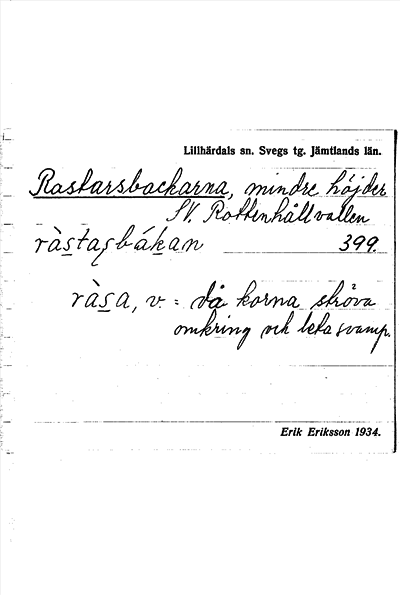 Lillhärdals sn. Svegs tg. Jämtlands län.
Rastarsbackarna, mindre höjder
SV. Rottenhållvallen
ràs̲taʂbák̲an 399.
ràs̲a, v. = då korna ströva
omkring och leta svamp.
Erik Eriksson 1934.